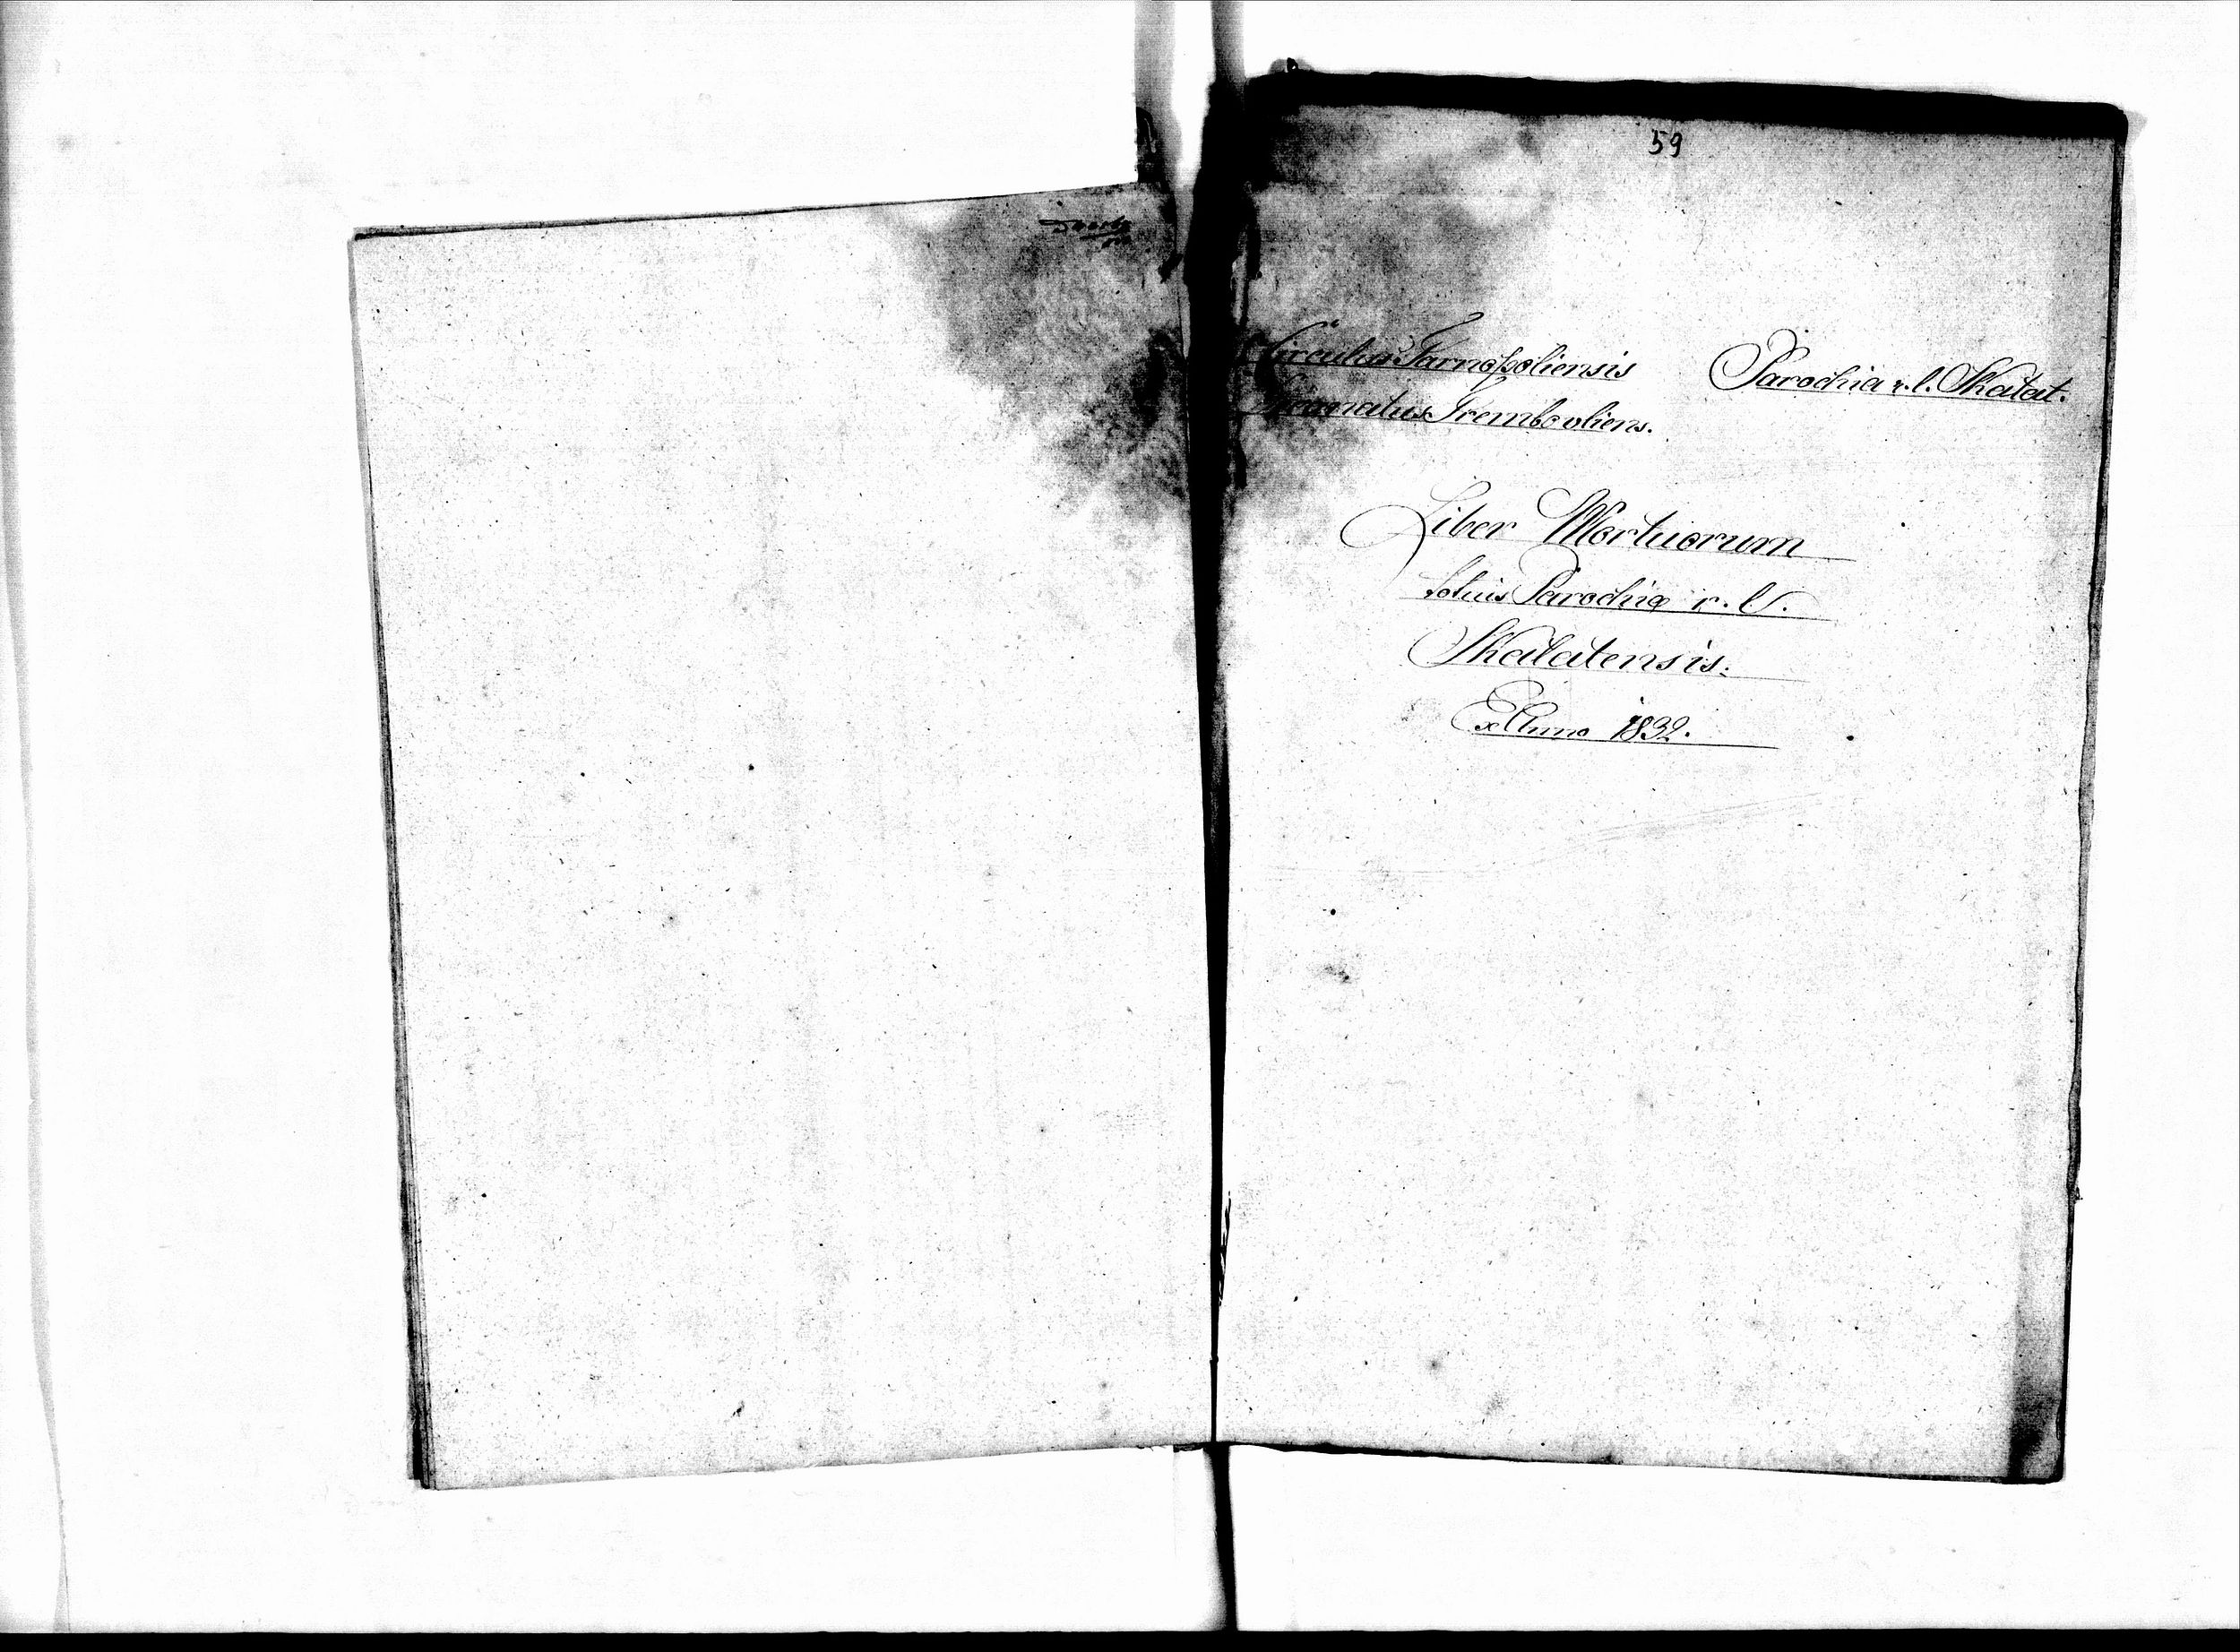 59
Circulus Tarnopoliensis
Parochia r. l. Skalat.
Decanatus Trembovliens.
Liber Mortuorum
totius Parochiæ r. l.
Skalatensis.
Ex Anno 1832.